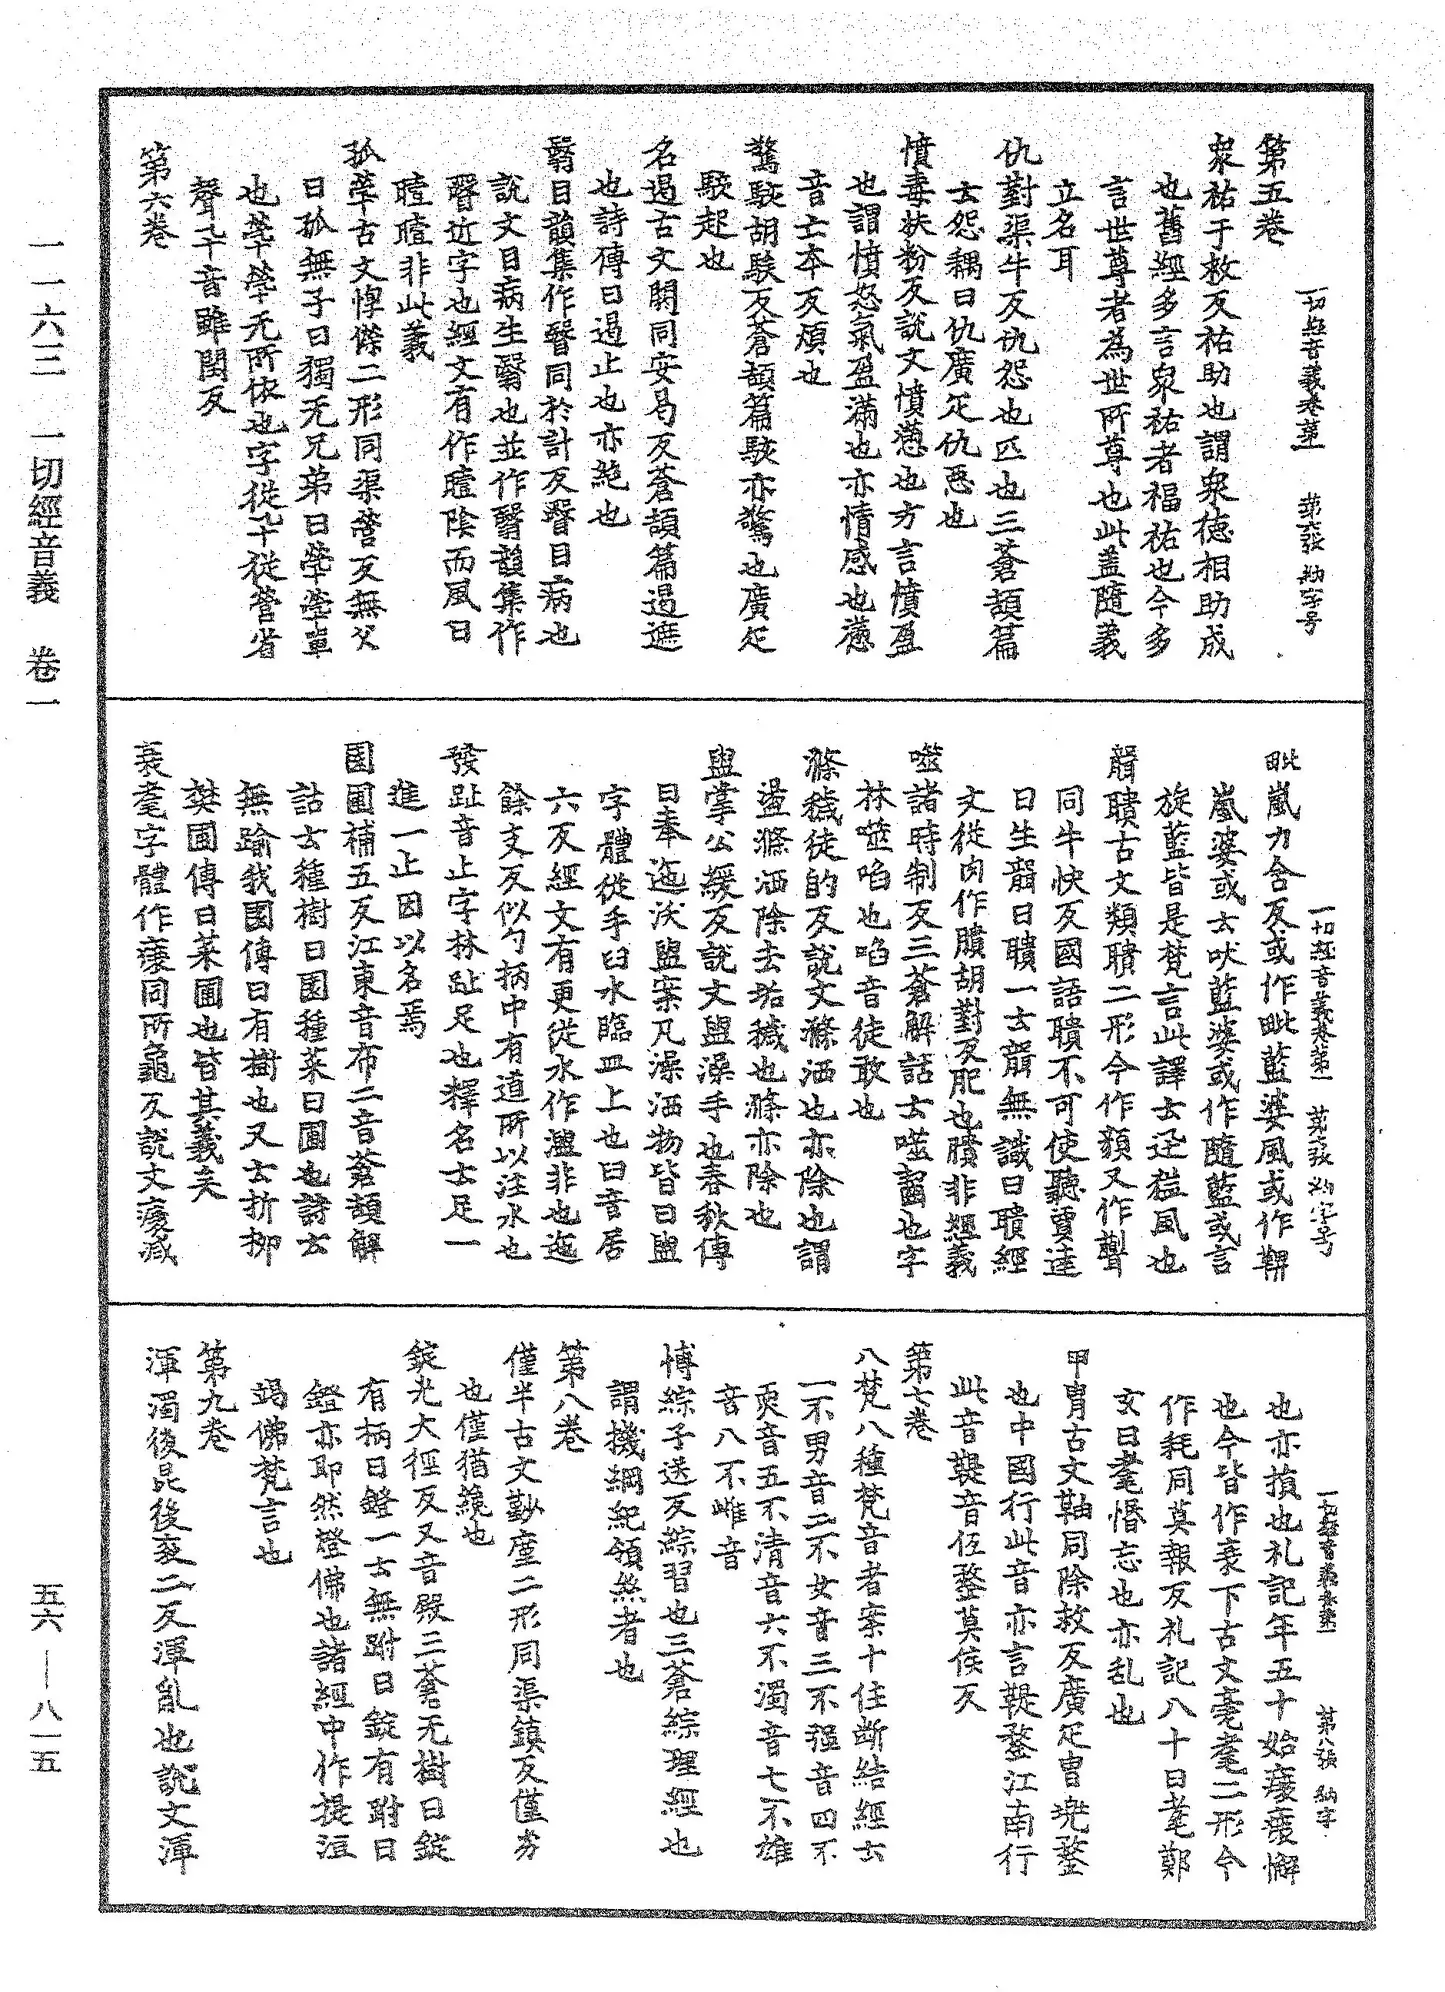 一一六三 一切經音義 卷一
五六—八一五
一切經音義卷第一 第六張 納字号
第五卷
眾祐于救反祐助也謂眾德相助成
也舊經多言眾祐者福祐也今多
言世尊者為世所尊也此盖隨義
立名耳
仇對渠牛反仇怨也匹也三蒼頡篇
云怨耦曰仇廣疋仇惡也
憤毒扶粉反說文憤懣也方言憤盈
也謂憤怒氣盈滿也亦情感也懣
音亡本反煩也
驚駭胡駭反蒼頡篇駭亦驚也廣疋
駭起也
名遏古文閼同安曷反蒼頡篇遏遮
也詩傳曰遏止也亦絕也
翳目韻集作瞖同於計反瞖目病也
說文目病生翳也並作翳韻集作
瞖近字也經文有作曀陰而風曰
曀曀非此義
孤煢古文惸㷀二形同渠營反無父
曰孤無子曰獨无兄弟曰煢煢單
也煢煢无所依也字從卂從營省
聲卂音雖閏反
第六卷
一切經音義卷第一 第七張 納字号
毗嵐力含反或作毗藍婆風或作鞞
嵐婆或云吠藍婆或作隨藍或言
旋藍皆是梵言此譯云迅猛風也
聾聵古文頪聵二形今作顡又作聾
同牛快反國語聵不可使聽賈逵
曰生聾曰聵一云聾無識曰聵經
文從肉作膭胡對反肥也膭非經義
噬諸時制反三蒼解詁云噬齧也字
林噬啗也啗音徒敢也
滌穢徒的反說文滌洒也亦除也謂
盪滌洒除去垢穢也滌亦除也
盥掌公緩反說文盥澡手也春秋傳
曰奉迤沃盥案凡澡洒物皆曰盥
字體從手臼水臨皿上也臼音居
六反經文有更從水作灎非也迤
餘支反似勺柄中有道所以注水也
發趾音止字林趾足也釋名云足一
進一止因以名焉
園圃補五反江東音布二音蒼頡解
詁云種樹曰園種菜曰圃也詩云
無踰我園傳曰有樹也又云折柳
樊圃傳曰菜圃也皆其義矣
衰耄字體作㾏同所龜反說文㾏减
一切經音義卷第一 第八張 納字
也亦損也礼記年五十始㾏㾏懈
也今皆作衰下古文耄耄二形今
作耗同莫報反礼記八十曰耄鄭
玄曰耄惛忘也亦乱也
甲胄古文軸同除救反廣疋胄兜鍪
也中國行此音亦言鞮鍪江南行
此音鞮音低鍪莫侯反
第七卷
八梵八種梵音者案十住断結經云
一不男音二不女音三不強音四不
耎音五不清音六不濁音七不雄
音八不雌音
博綜子送反綜習也三蒼綜理經也
謂機綱紀領絲者也
第八卷
僅半古文懃廑二形同渠鎮反僅劣
也僅猶纔也
錠光大徑反又音殿三蒼无樹曰錠
有柄曰鐙一云無跗曰錠有跗曰
鐙亦即然燈佛也諸經中作提洹
竭佛梵言也
第九卷
渾濁後昆後袞二反渾亂也說文渾